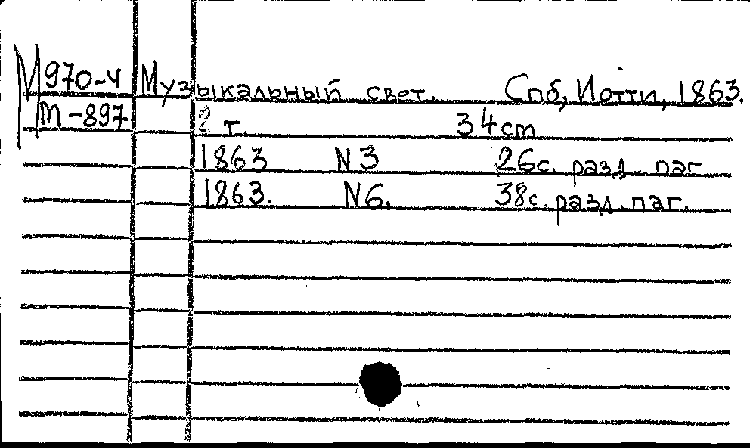 М 970-ч Музыкальный свет. Спб, Иотти, 1863.
М-897 2 т. 34 cm
1863 N3 26с. разд. паг.
1863. N6. 38с. разд. паг.